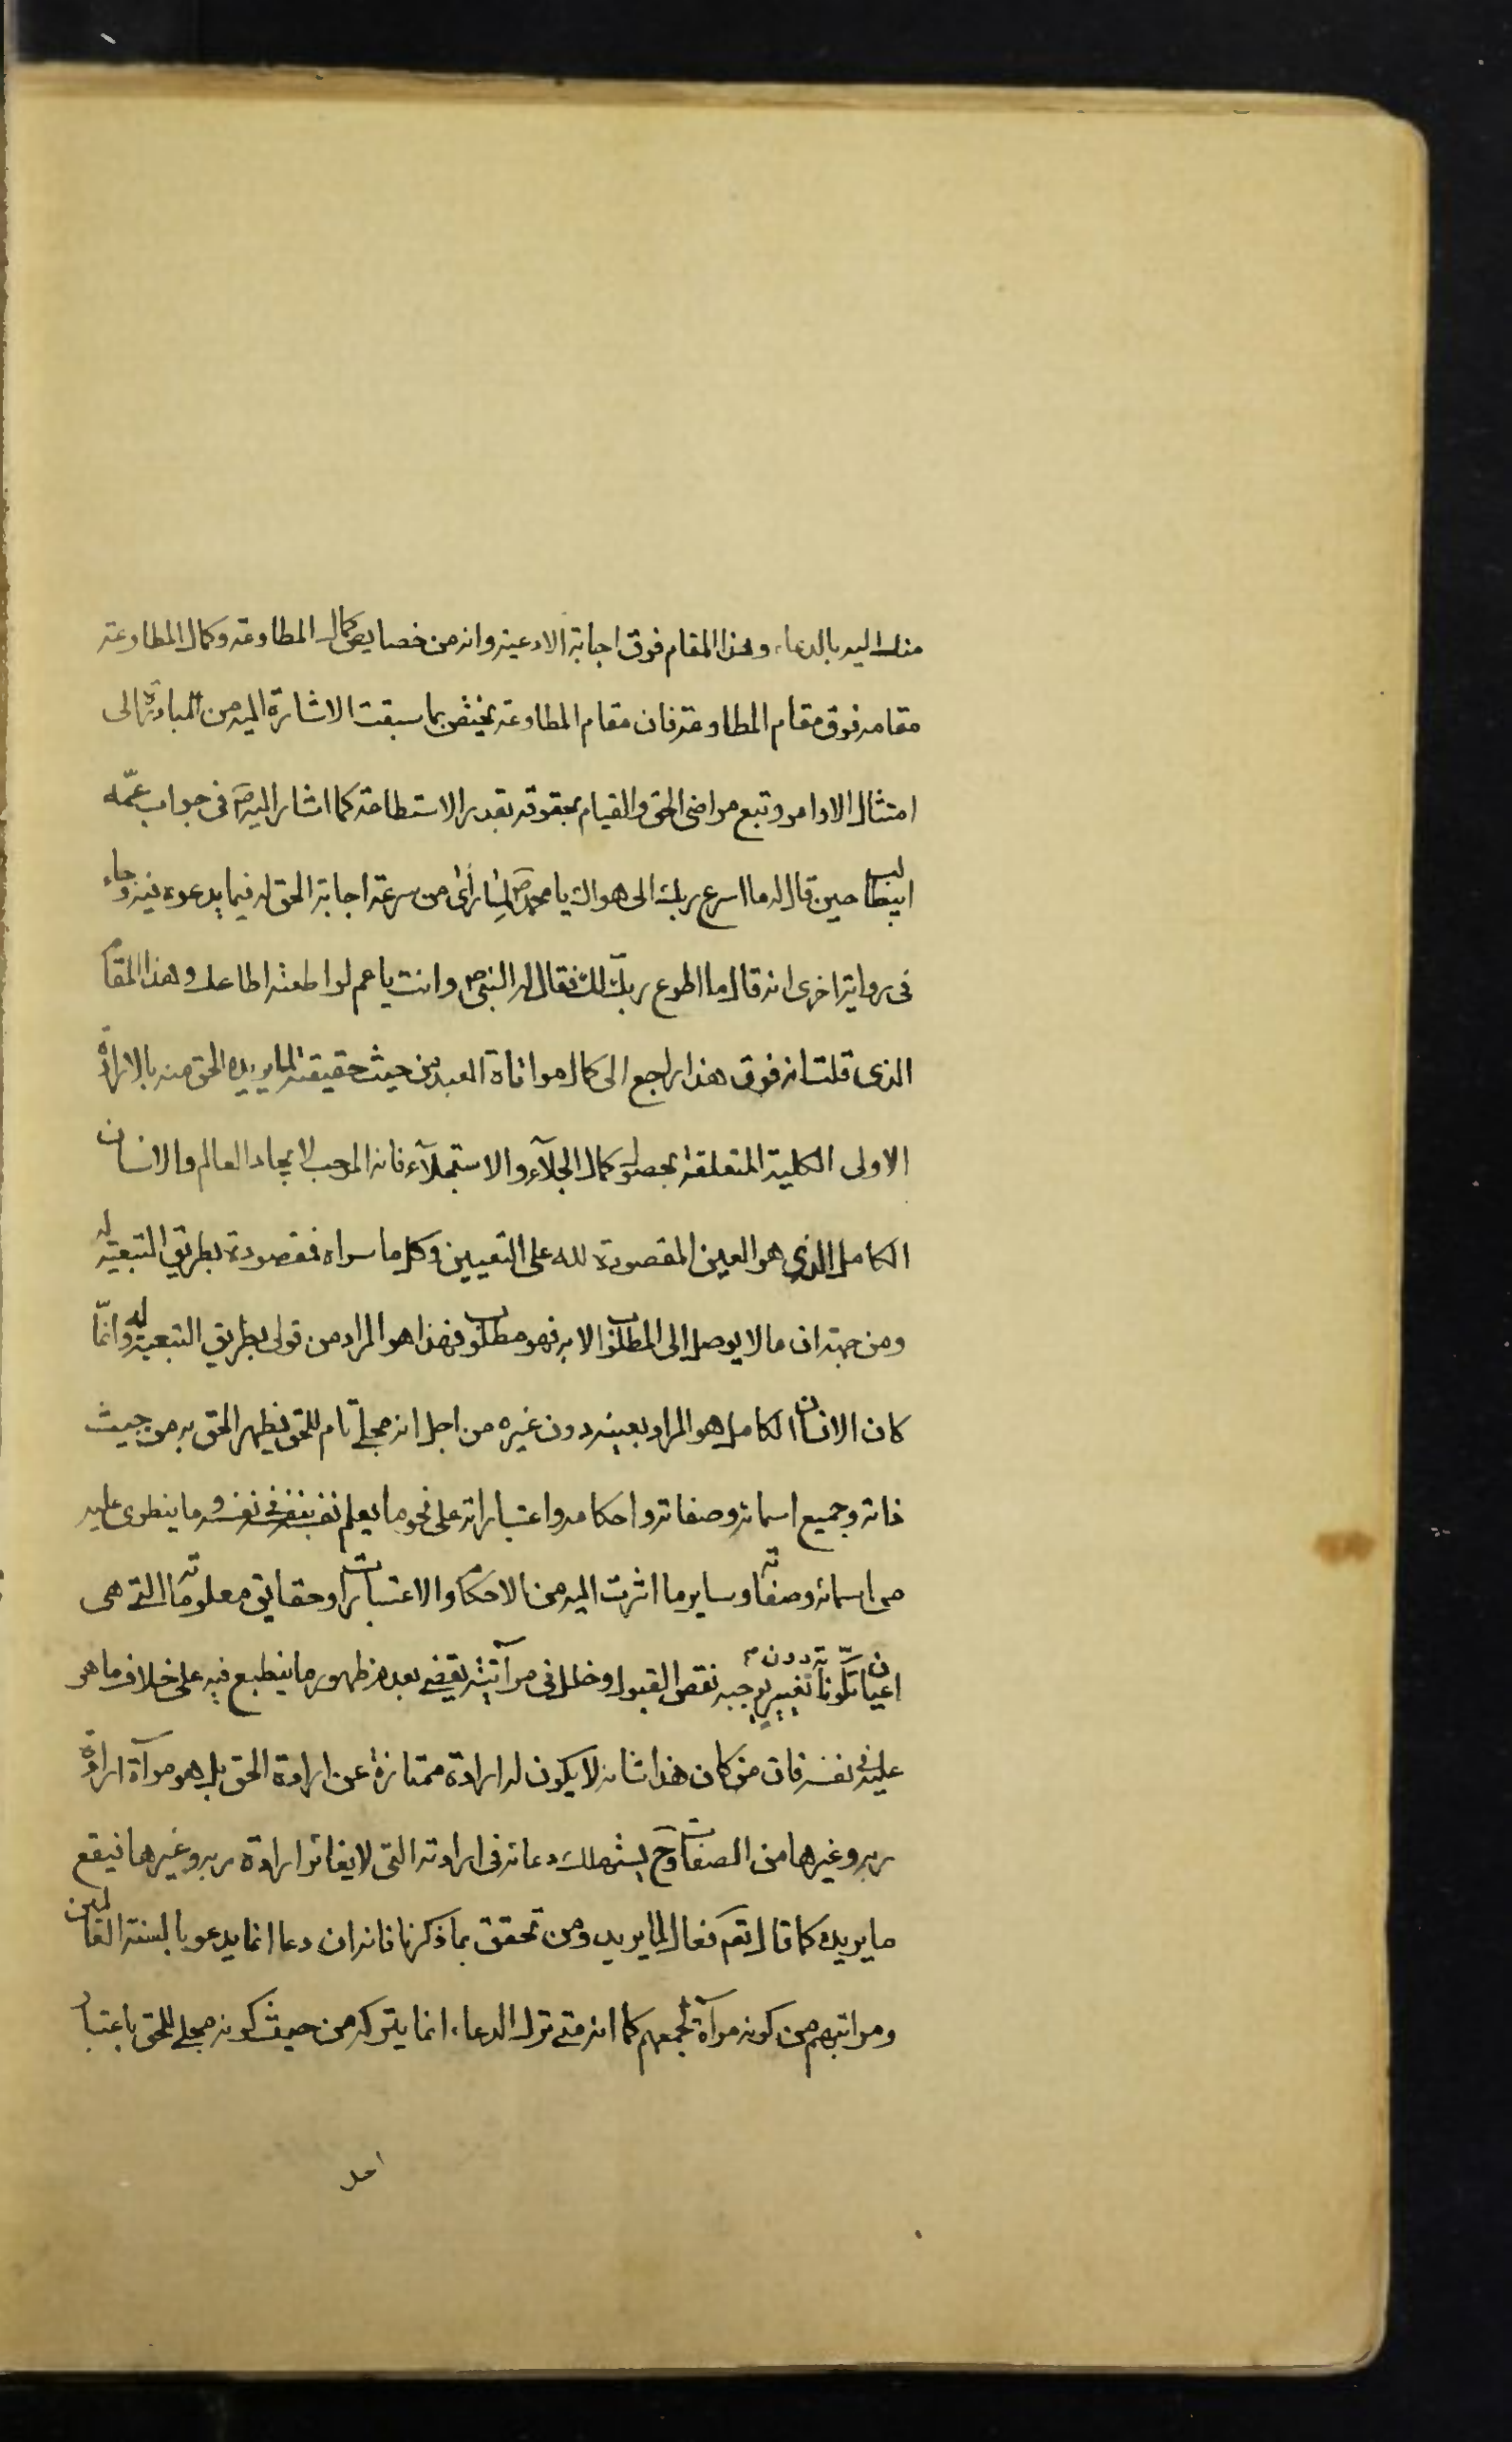 منك اليه بالدعاء وهذا المقام فوق اجابة الادعية وانه من خصايص كمال المطاوعة وكمال المطاوعة
مقامه فوق مقام المطاوعة فان مقام المطاوعة يختص بما سبقت الاشارة اليه من المبادرة الى
امتثال الاوامر وتبع مراضى الحق والقيام بحقوقه بقدر الاستطاعة كما اشار اليه ص فى جواب عمّه
ابيطالب حين قال له ما اسرع ربك الى هواك يا محمد ص لما رأى من سرعة اجابة الحق له فيما يدعوه فيه وجاء
فى رواية اخرى انه قال ما اطوع ربّك لك فقال له النبى ص وانت يا عم لو اطعته اطاعك وهذا المقام
الذى قلت انه فوق هذا راجع الى كمال مواتاة العبد من حيث حقيقته لما يريده الحق منه بالارادة
الاولى الكلية المتعلقة بحصول كمال الجلآء والاستجلآء فانه الموجب لايجاد العالم والانسان
الكامل الذى هو العين المقصودة لله على التعيين وكل ما سواه فمقصودة بطريق التبعية له
ومن جهة ان ما لا يوصل الى المطلوب الا به فهو مطلوب فهذا هو المراد من قولى بطريق التبعية له وانّما
كان الانسان الكامل هو المراد بعينه دون غيره من اجل انه مجلى تام للحق يظهر الحق به من حيث
ذاته وجميع اسمائه وصفاته واحكامه واعتباراته على نحو ما يعلم نفسه بنفسه فى نفسه وما ينطوى عليه
من اسمائه وصفاته وساير ما اشرت اليه من الاحكام والاعتبارات وحقايق معلوماته التى هى
اعيان مكوناته دون تغيير يوجبه نقص القبول وخلل فى مرآتيته يقضى بعدم ظهور ما ينطبع فيه على خلاف ما هو
عليه فى نفسه فان من كان هذا شانه لا يكون له ارادة ممتازة عن ارادة الحق بل هو مرآة ارادة
ربه وغيرها من الصفات وح يستهلك دعائه فى ارادته التى لا يغائر ارادة ربه وغيرها فيقع
ما يريد كما قال تعم فعال لما يريد ومن تحقق بما ذكرنا فانه ان دعا انما يدعو بالسنة العالمين
ومراتبهم من كونه مرآة لجمعهم كما انه متى ترك الدعاء انما يتركه من حيث كونه مجلى للحق باعتبار